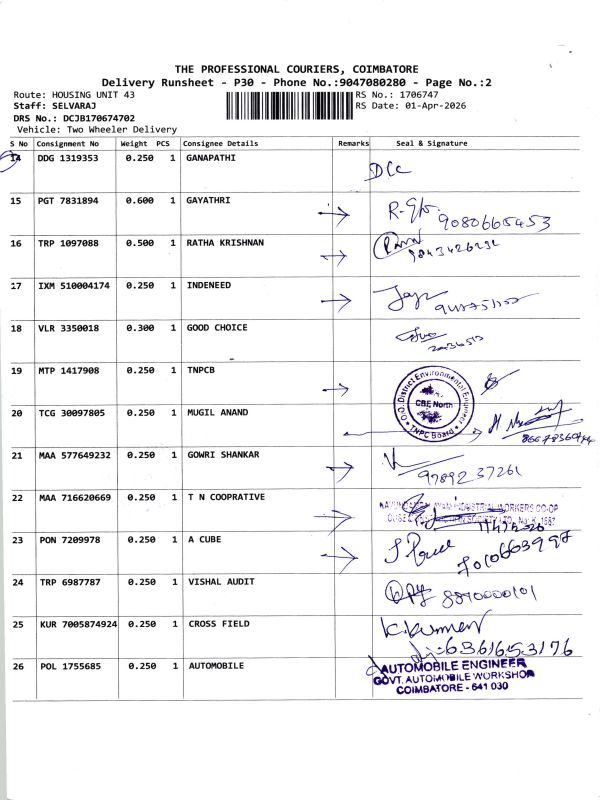 THE PROFESSIONAL COURIERS, COIMBATORE
Delivery Runsheet - P30 - Phone No.:9047080280 - Page No.:2
Route: HOUSING UNIT 43 RS No.: 1706747
Staff: SELVARAJ RS Date: 01-Apr-2026
DRS No.: DCJB170674702
Vehicle: Two Wheeler Delivery
S No Consignment No Weight PCS Consignee Details Remarks Seal & Signature
14 DDG 1319353 0.250 1 GANAPATHI
DCC
15 PGT 7831894 0.600 1 GAYATHRI
9080665453
16 TRP 1097088 0.500 1 RATHA KRISHNAN
17 IXM 510004174 0.250 1 INDENEED
18 VLR 3350018 0.300 1 GOOD CHOICE
19 MTP 1417908 0.250 1 TNPCB
O/O. District Environmental Engineer
CBE North
TNPC Board
20 TCG 30097805 0.250 1 MUGIL ANAND
21 MAA 577649232 0.250 1 GOWRI SHANKAR
97892 37261
22 MAA 716620669 0.250 1 T N COOPRATIVE
INDUSTRIAL WORKERS CO-OP
23 PON 7209978 0.250 1 A CUBE
7010663997
24 TRP 6987787 0.250 1 VISHAL AUDIT
8890000101
25 KUR 7005874924 0.250 1 CROSS FIELD
K.Kumar
6361653176
26 POL 1755685 0.250 1 AUTOMOBILE
AUTOMOBILE ENGINEER
GOVT. AUTOMOBILE WORKSHOP
COIMBATORE - 641 030